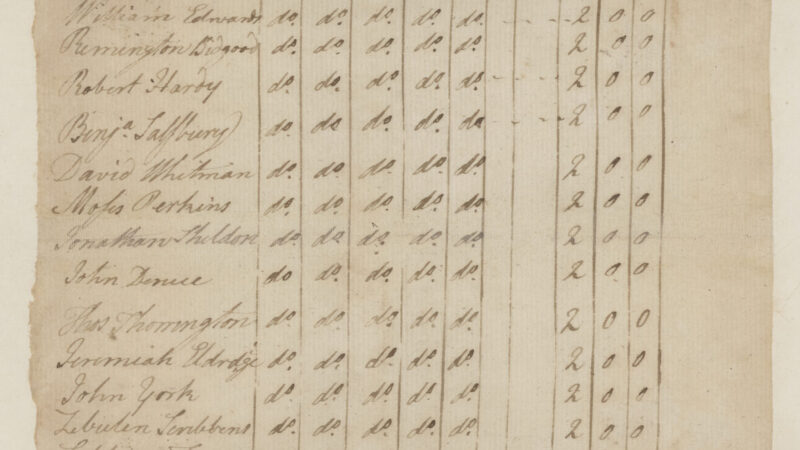 William Edwards do. do. do. do. do. 2 0 0
Remington Bidgood do. do. do. do. do. 2 0 0
Robert Hardy do. do. do. do. do. 2 0 0
Benja Salsbury do. do do. do. do 2 0 0
David Whitman do. do. do. do. do. 2 0 0
Moses Perkins do. do. do. do. do. 2 0 0
Jonathan Sheldon do. do do. do. do. 2 0 0
John do do. do. do. do. 2 0 0
Thos Thornington do. do. do. do. do. 2 0 0
Jeremiah Eldredge do. do. do. do. do. 2 0 0
John York do. do. do. do. do. 2 0 0
Zebulen Scribbens do. do. do. do. do. 2 0 0